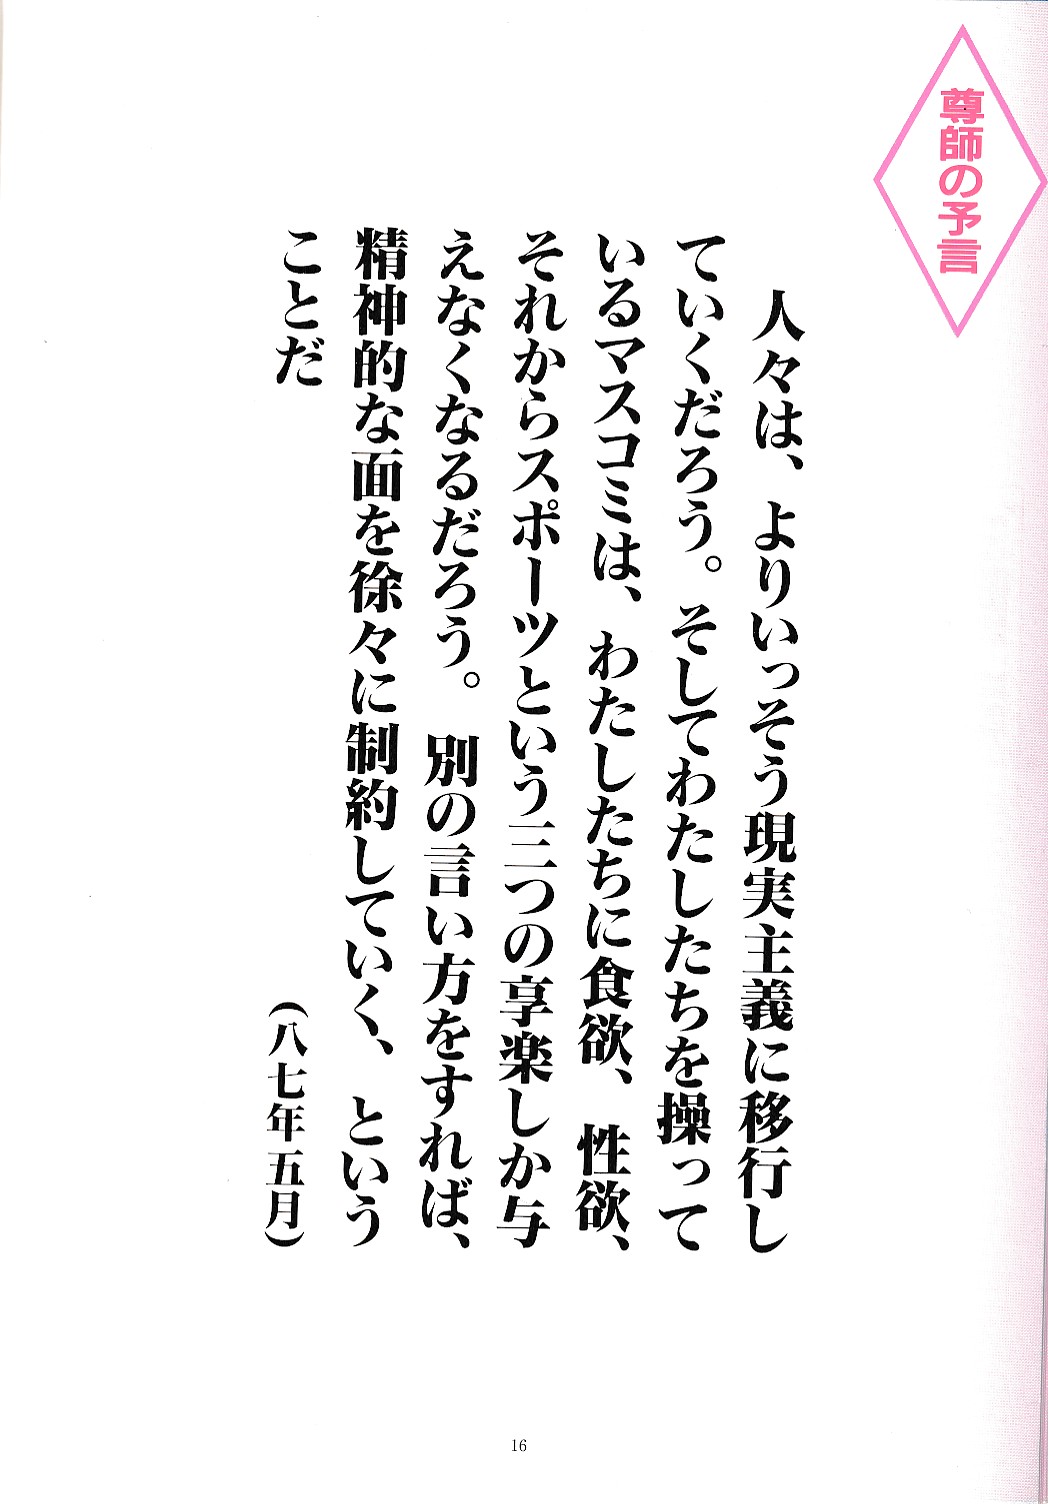 尊師の予言
人々は、よりいっそう現実主義に移行し
ていくだろう。そしてわたしたちを操って
いるマスコミは、わたしたちに食欲、性欲、
それからスポーツという三つの享楽しか与
えなくなるだろう。別の言い方をすれば、
精神的な面を徐々に制約していく、という
ことだ
(八七年五月)
16